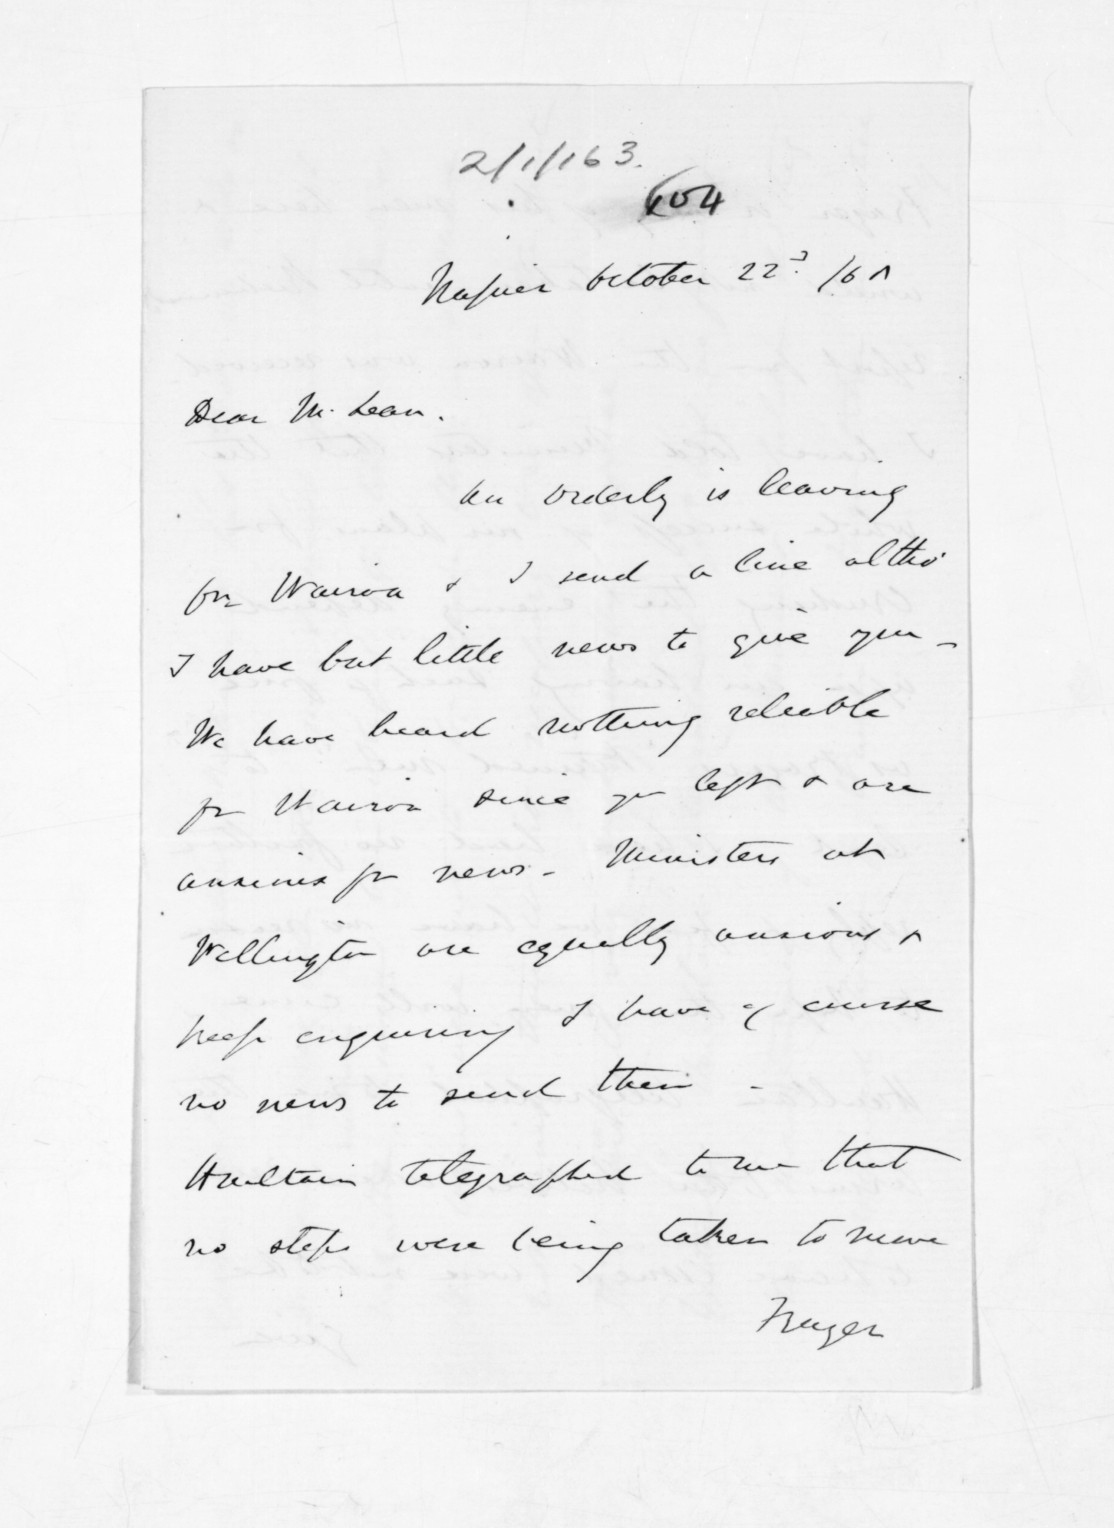 2/1/163.
604
Napier October 22d. /68
Dear McLean.
An orderly is leaving
for Wairoa & I send a line altho'
I have but little news to give you -
We have heard nothing reliable
fm Wairoa since you left & are
anxious for news - Ministers at
Wellington are equally anxious &
keep enquiring I have of course
no news to send them -
Haultain telegraphed to me that
no steps were being taken to move
Frazer